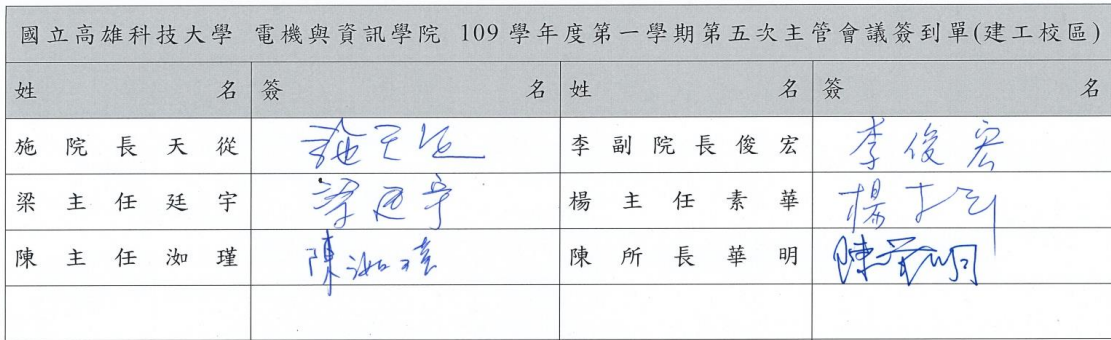 國立高雄科技大學 電機與資訊學院 109 學年度第一學期第五次主管會議簽到單(建工校區)
姓名 簽名 姓名 簽名
施院長天從 施天從 李副院長俊宏 李俊宏
梁主任廷宇 梁廷宇 楊主任素華 楊
陳主任洳瑾 陳洳瑾 陳所長華明 陳華明